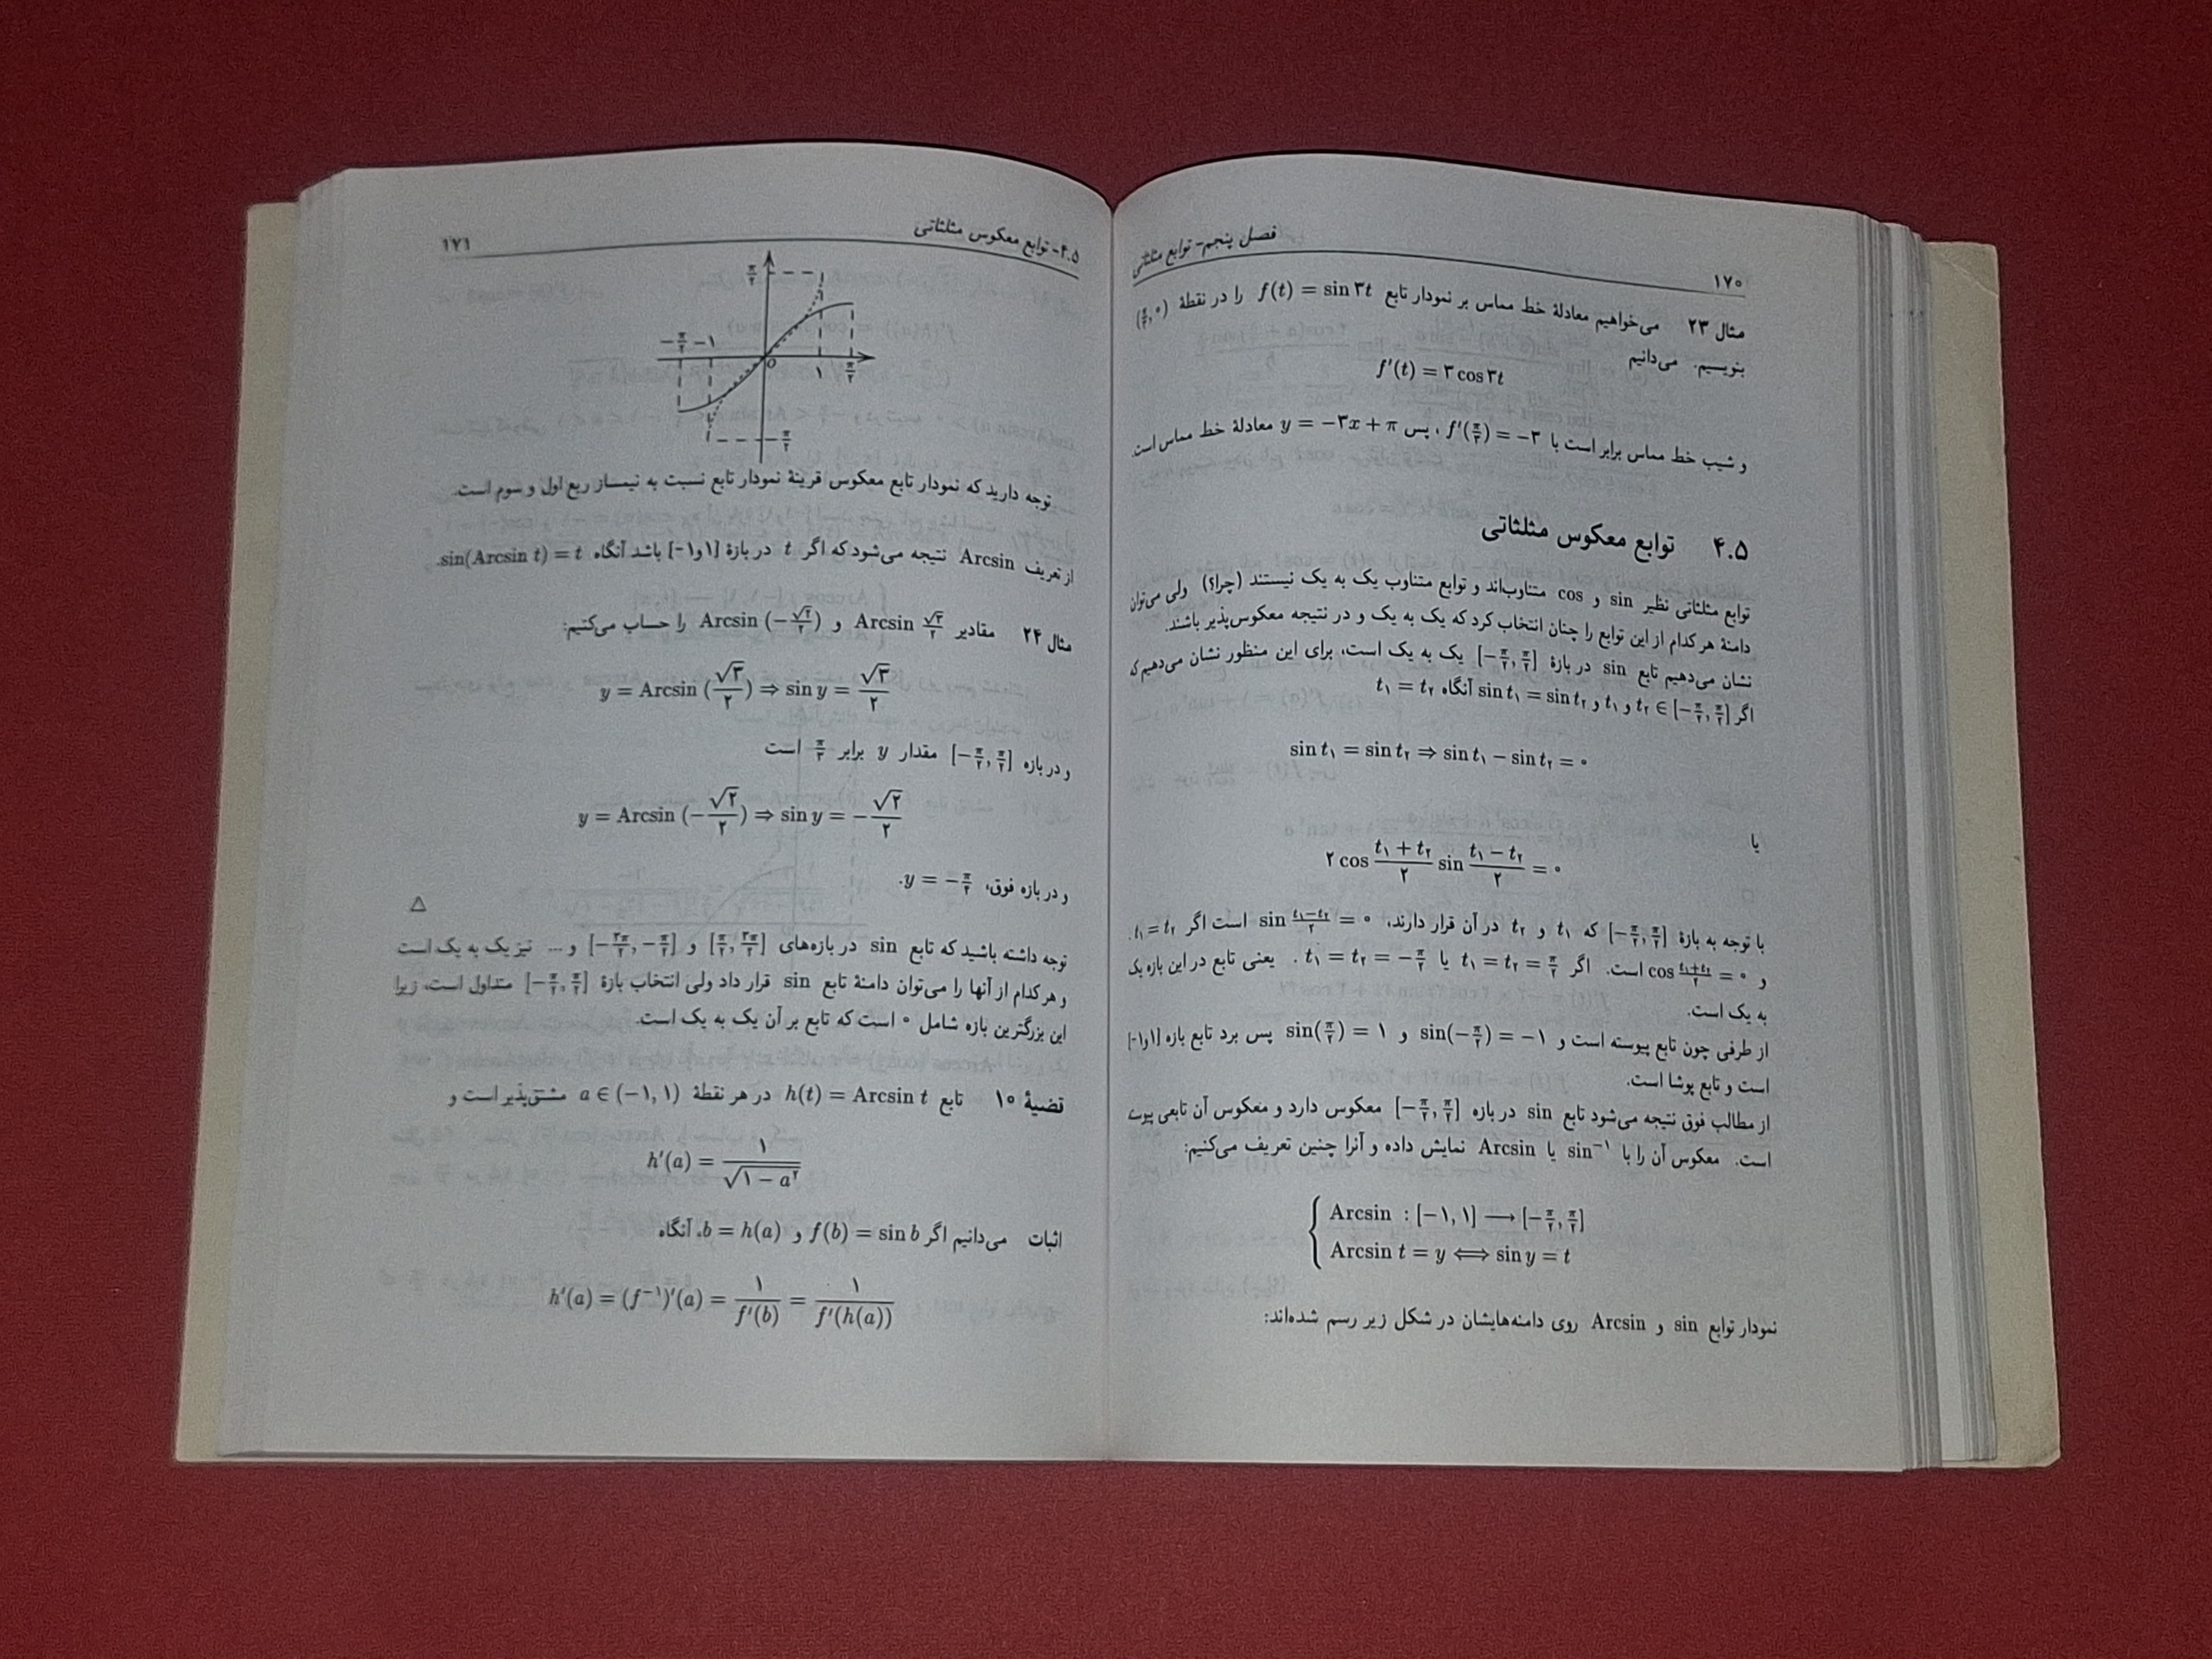 ۱۷۰
فصل پنجم- توابع مثلثاتی
مثال ۲۳ می‌خواهیم معادلهٔ خط مماس بر نمودار تابع f(t) = sin ۳t را در نقطهٔ
بنویسیم. می‌دانیم
f′(t) = ۳ cos ۳t
و شیب خط مماس برابر است با f′(π/۳) = −۳، پس y = −۳x + π معادلهٔ خط مماس است.
۴.۵ توابع معکوس مثلثاتی
توابع مثلثاتی نظیر sin و cos متناوب‌اند و توابع متناوب یک به یک نیستند (چرا؟) ولی می‌توان
دامنهٔ هر کدام از این توابع را چنان انتخاب کرد که یک به یک و در نتیجه معکوس‌پذیر باشند.
نشان می‌دهیم تابع sin در بازهٔ [−π/۲, π/۲] یک به یک است، برای این منظور نشان می‌دهیم که
اگر t₁ و t₂ ∈ [−π/۲, π/۲] و sin t₁ = sin t₂ آنگاه t₁ = t₂
sin t₁ = sin t₂ ⇒ sin t₁ − sin t₂ = ۰
یا
۲ cos (t₁ + t₂)/۲ sin (t₁ − t₂)/۲ = ۰
با توجه به بازهٔ [−π/۲, π/۲] که t₁ و t₂ در آن قرار دارند، sin (t₁−t₂)/۲ = ۰ است اگر t₁ = t₂.
و cos (t₁+t₂)/۲ = ۰ است. اگر t₁ = t₂ = π/۲ یا t₁ = t₂ = −π/۲ . یعنی تابع در این بازه یک
به یک است.
از طرفی چون تابع پیوسته است و sin(−π/۲) = −۱ و sin(π/۲) = ۱ پس برد تابع بازه [۱و۱−]
است و تابع پوشا است.
از مطالب فوق نتیجه می‌شود تابع sin در بازه [−π/۲, π/۲] معکوس دارد و معکوس آن تابعی
است. معکوس آن را با sin⁻¹ یا Arcsin نمایش داده و آنرا چنین تعریف می‌کنیم:
Arcsin : [−۱, ۱] ⟶ [−π/۲, π/۲]
Arcsin t = y ⟺ sin y = t
نمودار توابع sin و Arcsin روی دامنه‌هایشان در شکل زیر رسم شده‌اند:
۴.۵- توابع معکوس مثلثاتی
۱۷۱
π/۲
−π/۲ −۱
o
۱ π/۲
−π/۲
توجه دارید که نمودار تابع معکوس قرینهٔ نمودار تابع نسبت به نیمساز ربع اول و سوم است.
از تعریف Arcsin نتیجه می‌شود که اگر t در بازهٔ [۱و۱−] باشد آنگاه sin(Arcsin t) = t.
مثال ۲۴ مقادیر Arcsin √۳/۲ و Arcsin (−√۲/۲) را حساب می‌کنیم:
y = Arcsin (√۳/۲) ⇒ sin y = √۳/۲
و در بازه [−π/۲, π/۲] مقدار y برابر π/۳ است
y = Arcsin (−√۲/۲) ⇒ sin y = −√۲/۲
و در بازه فوق، y = −π/۲.
△
توجه داشته باشید که تابع sin در بازه‌های [π/۲, ۳π/۲] و [−۳π/۲, −π/۲] و ... نیز یک به یک است
و هر کدام از آنها را می‌توان دامنهٔ تابع sin قرار داد ولی انتخاب بازهٔ [−π/۲, π/۲] متداول است، زیرا
این بزرگترین بازه شامل ۰ است که تابع بر آن یک به یک است.
قضیهٔ ۱۰ تابع h(t) = Arcsin t در هر نقطهٔ a ∈ (−۱, ۱) مشتق‌پذیر است و
h′(a) = ۱/√(۱ − a²)
اثبات می‌دانیم اگر f(b) = sin b و b = h(a)، آنگاه
h′(a) = (f⁻¹)′(a) = ۱/f′(b) = ۱/f′(h(a))